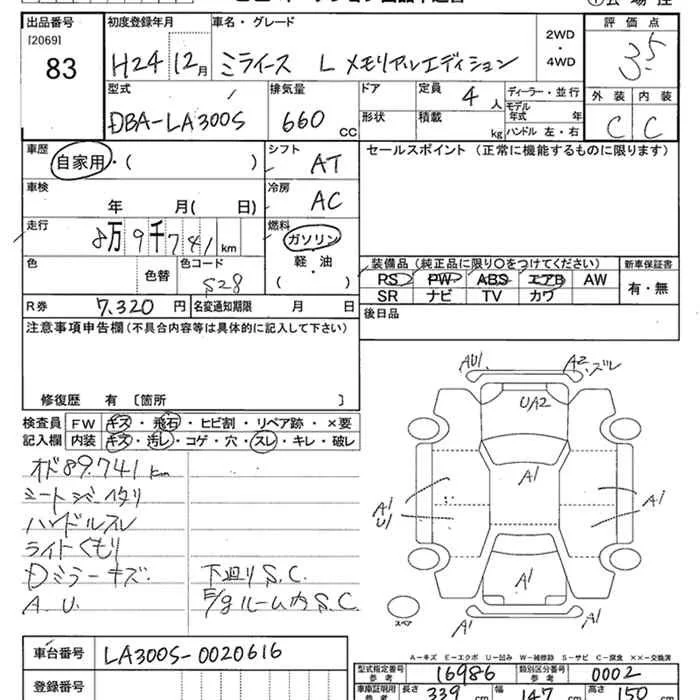 出品番号 初度登録年月 車名・グレード 2WD・4WD 評価点
[2069]
83 H24 12月 ミライース L メモリアルエディション 3.5
型式 排気量 ドア 定員 4人 ディーラー・並行 外装 内装
DBA-LA300S 660 CC 形状 積載 kg モデル年式 年 C C
ハンドル 左・右
車歴 自家用・( ) シフト AT セールスポイント (正常に機能するものに限ります)
車検 年 月( 日) 冷房 AC
走行 8万9千741km 燃料 ガソリン
軽・油
( )
色 色替 色コード S28
装備品 (純正品に限り○をつけてください) 新車保証書
RS PW ABS エアB AW 有・無
SR ナビ TV カワ
R券 7,320円 名変通知期限 月 日 後日品
注意事項申告欄(不具合内容等は具体的に記入して下さい)
修復歴 有 [箇所 ]
検査員 FW キズ・飛石・ヒビ割・リペア跡・×要
記入欄 内装 キズ・汚レ・コゲ・穴・スレ・キレ・破レ
オド89.741km
シートシミ
ハンドルスレ
ライトくもり
Dミラーキズ 下廻りS.C.
A.U. E/gルーム内S.C.
AU1 A2.ズレ
UA2
A1
A1
U1
A1
A1
A1 A1
スペア
A-キズ E-エクボ U-凹み W-補修跡 S-サビ C-腐食 ××-交換済
車台番号 LA300S-0020616
登録番号
型式指定番号 参考 16986 類別区分番号 参考 0002
車庫証明用 参考 長さ 339 cm 幅 147 cm 高さ 150 cm